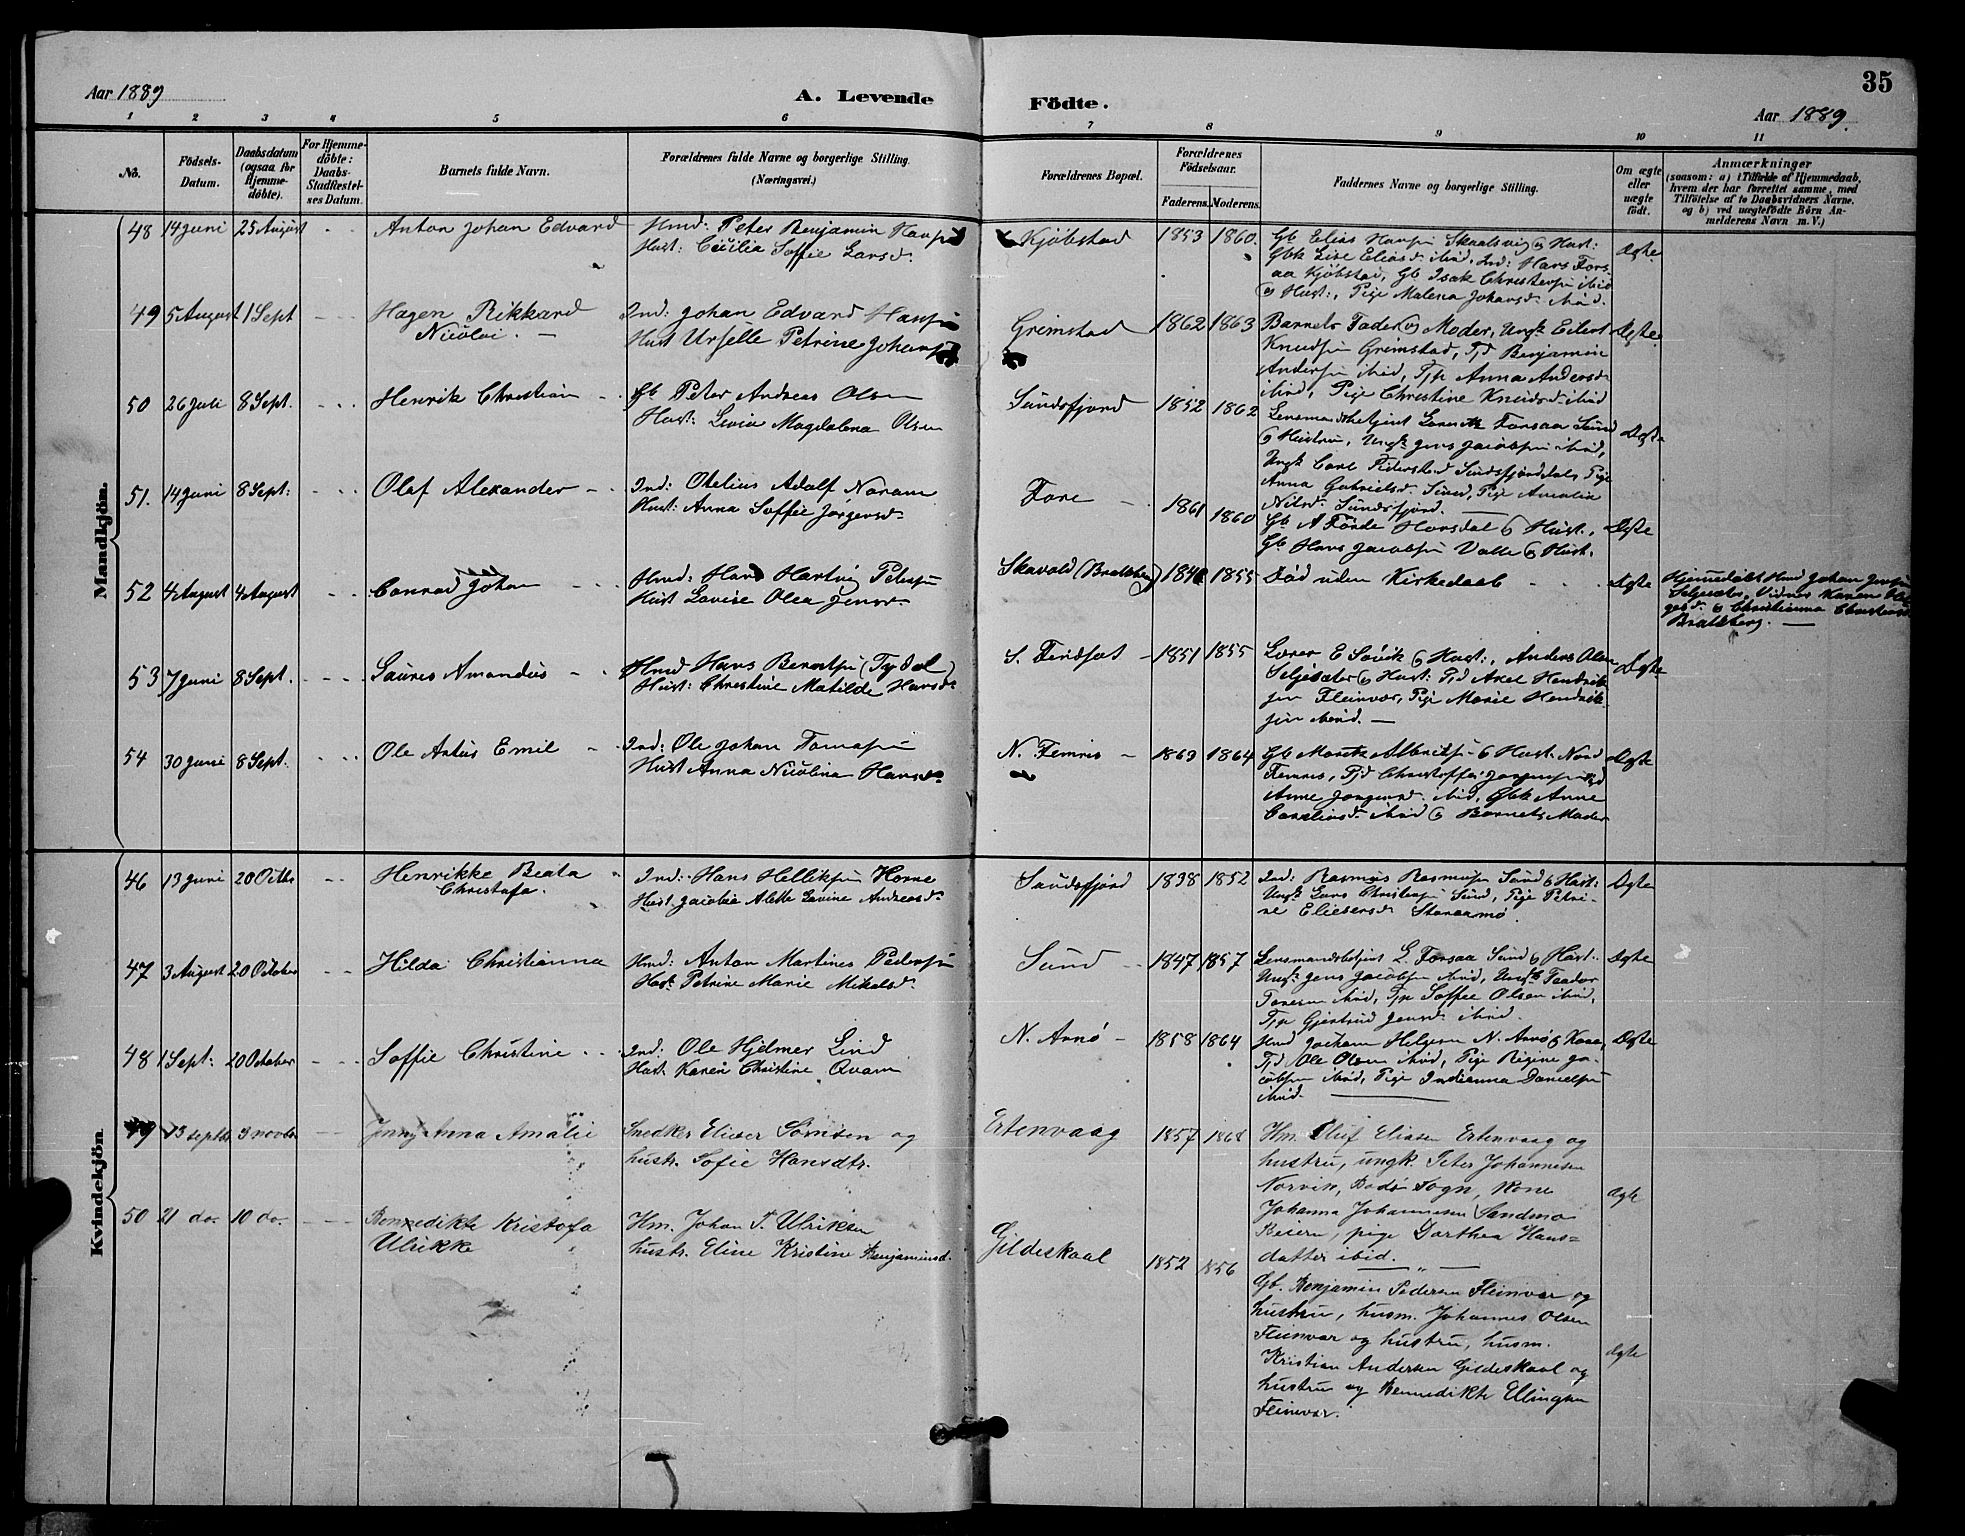 35
Aar 1889
A. Levende
Födte.
Aar 1889.
1 2 3 4 5 6 7 8 9 10 11
No.
Födsels-
Datum.
Daabsdatum
(ogsaa for
Hjemme-
döbte).
For Hjemme-
döbte:
Daabs-
Stadfæstel-
ses Datum.
Barnets fulde Navn.
Forældrenes fulde Navne og borgerlige Stilling.
(Næringsvei.)
Forældrenes Bopæl.
Forældrenes
Födselsaar.
Faderens. Moderens.
Faddernes Navne og borgerlige Stilling.
Om ægte
eller
uægte
födt.
Anmærkninger
(saasom: a) i Tilfælde af Hjemmedaab,
hvem der har forrettet samme, med
Tilföielse af to Daabsvidners Navne.
og b) ved uægtefödte Börn An-
melderens Navn m. V.)
Mandkjön.
48 14 Juni 25 August Anton Johan Edvard
Hmd: Peter Benjamin Hansen
Hust: Cecilia Soffie Larsd.
Kjöbstad 1853 1860.
Gb Elias Hansen Skaalsvig og Hust:
Gbk Lise Eliasd. ibid, Ind: Hans Fors
aa Kjöbstad, Gb Isak Christensen ibid
og Hust:, Pige Malena Johansd. ibid.
Ægte
49 5 August 1 Sept Hagen Rikkard
Nicolai.
Ind: Johan Edvard Hansen
Hust Urselle Petrine Johans
Grimstad 1862 1863
Barnets Fader og Moder, Ungk Eilert
Knudsen Grimstad, Tjd Benjamin
Andersen ibid, Tjp Anna Andersd.
ibid, Pige Christine Knudsd. ibid
Ægte
50 26 Juli 8 Sept. Henrik Christian
Gb Peter Andreas Olsen
Hust: Livia Magdalena Olsen
Sundsfjord 1852 1862
Lensmandsbetjent Lorentz Forsaa Sund
og Hustru, Ungk Jens Jacobsen ibid,
Ungk Carl Sundsfjorddal, Pige
Anna Gabrielsd. Sund, Pige Amalia
Nilsd. Sundsfjord.
Ægte
51. 14 Juni 8 Sept: Olaf Alexander
Ind: Otelius Adolf Noram
Hust: Anna Soffie Jorgensd.
Fore 1861 1860
Gb A Förde Horsdal og Hust.,
Gb Hans Jacobsen Valle og Hust.
Ægte
52 4 August 4 August Conrad Johan
Hmd: Hans Hartvig Petersen
Hust Lovise Olea Jensd.
Skavold (Bratsberg) 1840 1855
Död uden Kirkedaab
Ægte
Hjemmedöbt Hmd Johan Jensen
Seljesæter, Vidner Karen
gesd. og Christianna Christensd.
Bratsberg.
53 7 Juni 8 Sept. Laures Amandus
Hmd Hans Berntsen (Tydal)
Hust: Christine Matilde Hansd.
S. Findset 1851 1855
Lærer E Sövik og Hust:, Anders Olsen
Seljesæter og Hust: Tjd Axel Hendrik
sen Fleinvær, Pige Marie Hendrik
sen ibid.
Ægte
54 30 Juni 8 Sept. Ole Antus Emil
Ind: Ole Johan Tomasen
Hust Anna Nicolina Hansd.
N. Femris 1863 1864
Gb Moritz Albrigtsen og Hust. Nord
Femris, Tjd Christoffer Jorgensen ibid
Anne Jorgensd. ibid, Gbk Anne
Corneliusd. ibid og Barnets Moder
Ægte
Kvindekjön
46 13 Juni 20 Octbr Henrikke Beata
Christofa.
Ind: Hans Helliksen Horne
Hust. Jacobia Alette Lovine Andreasd.
Sundsfjord 1838 1852
Ind: Rasmus Rasmusen Sund og Hust:
Ungk Lars Christensen Sund, Pige Petri-
ne Eliesersd. Storaamo.
Ægte
47 3 August 20 October Hilda Christianna
Hmd: Anton Martines Pedersen
Hust. Petrine Marie Mikalsd.
Sund 1847 1857
Lensmandsbetjent L. Forsaa Sund og Hust:
Ungk Jens Jacobsen ibid, Ungk Feodor
Toresen ibid, Tjp Soffie Olsen ibid,
Tjp Gjertrud Jensd. ibid.
Ægte
48 1 Sept: 20 October Soffie Christine
Ind: Ole Hjelmer Lind
Hust. Karen Christine Qvam
N. Arnö 1858 1864
Hmd Jochum Helgesen N. Arnö og Kone,
Tjd Ole Olsen ibid, Pige Regine Ja-
cobsen ibid, Pige Indianna Danielsen
ibid.
Ægte
49 13 septbr 3 novbr Jenny Anna Amalie
Snedker Elieser Sörnsen og
hustr. Sofie Hansdtr.
Ertenvaag 1857 1868
Hm. Oluf Eliasen Ertenvaag og
hustru, ungk. Peter Johannesen
Norvik, Bodö Sogn, kone
Johanna Johannesen Sandmo
Beiern, pige Dorthea Hans=
datter ibid.
Ægte
50 21 do. 10 do. Bennedikte Kristofa
Ulrikke
Hm. Johan P. Ulriksen
hustr. Eline Kristine Benjaminsd.
Gildeskaal 1852 1856
Gb. Benjamin Pedersen Fleinvær og
hustru, husm. Johannes Olsen
Fleinvær og hustru, husm.
Kristian Andersen Gildeskaal og
hustru og Bennedikte Ellingsen
Fleinvær.
Ægte